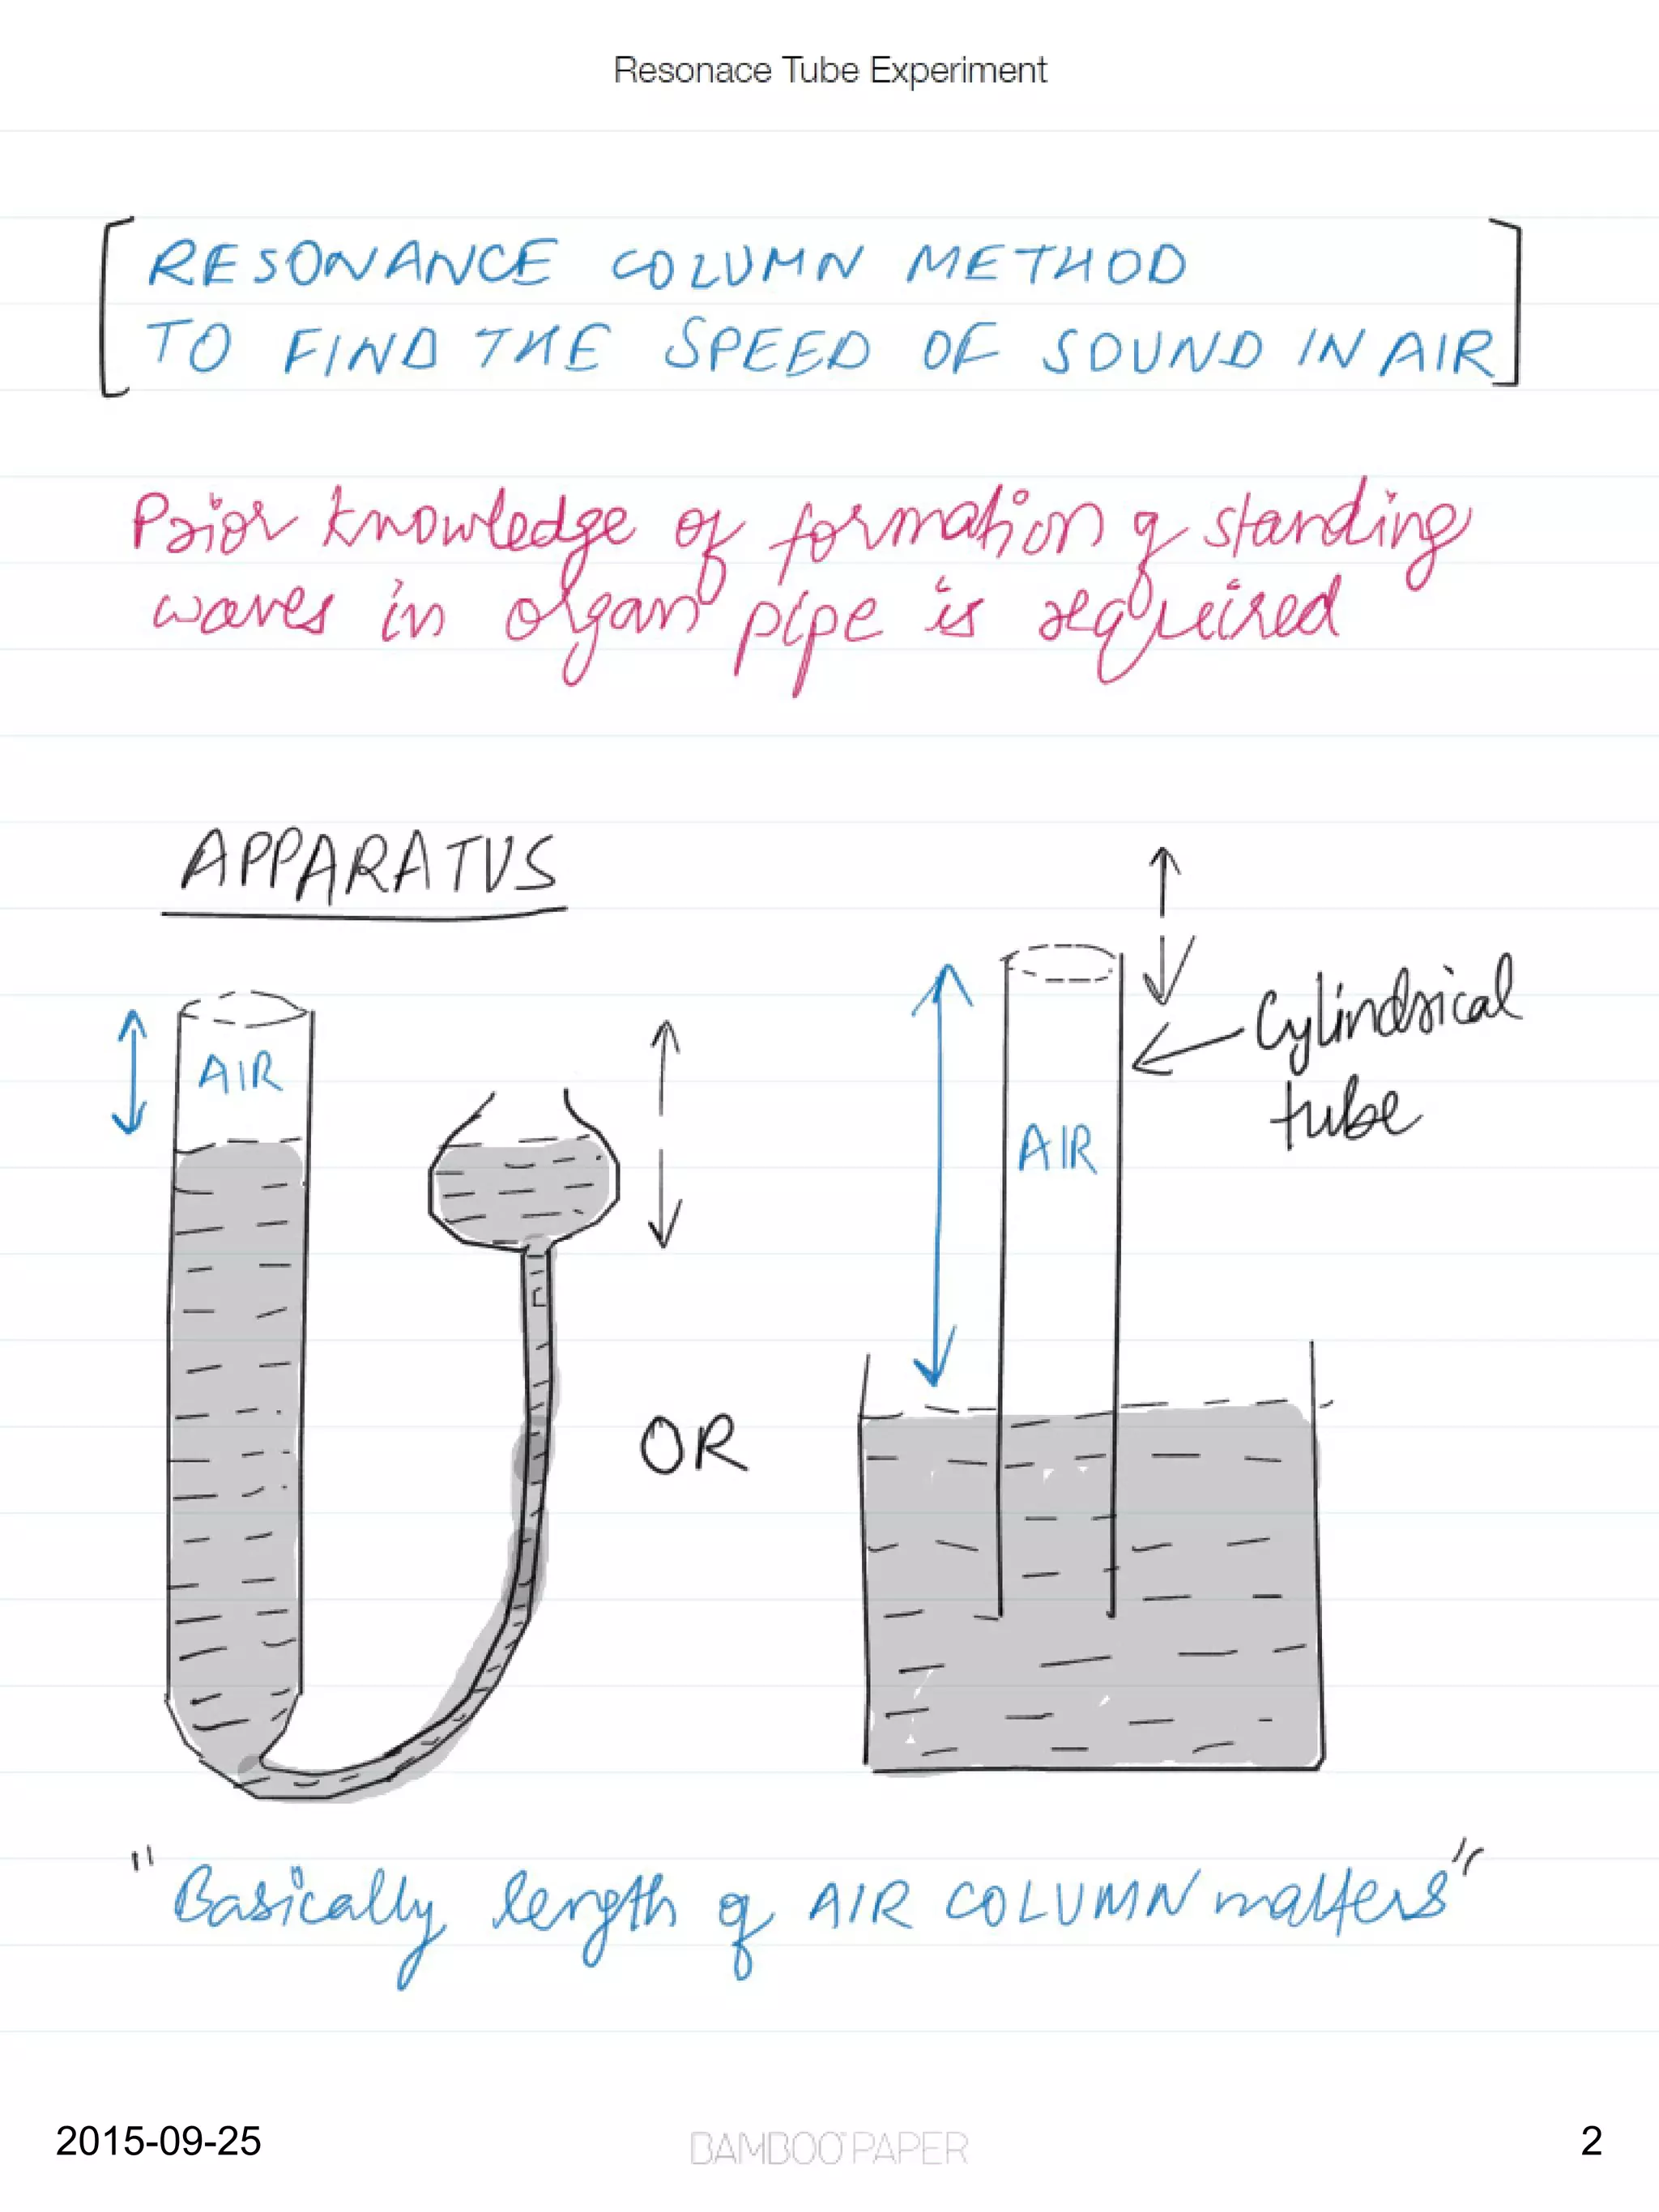 Resonace Tube Experiment
RESONANCE COLUMN METHOD
TO FIND THE SPEED OF SOUND IN AIR
Prior knowledge of formation of standing
waves in organ pipe is required
APPARATUS
Cylindrical
tube
AIR
AIR
OR
"Basically length of AIR COLUMN matters"
2015-09-25
BAMBOO PAPER
2